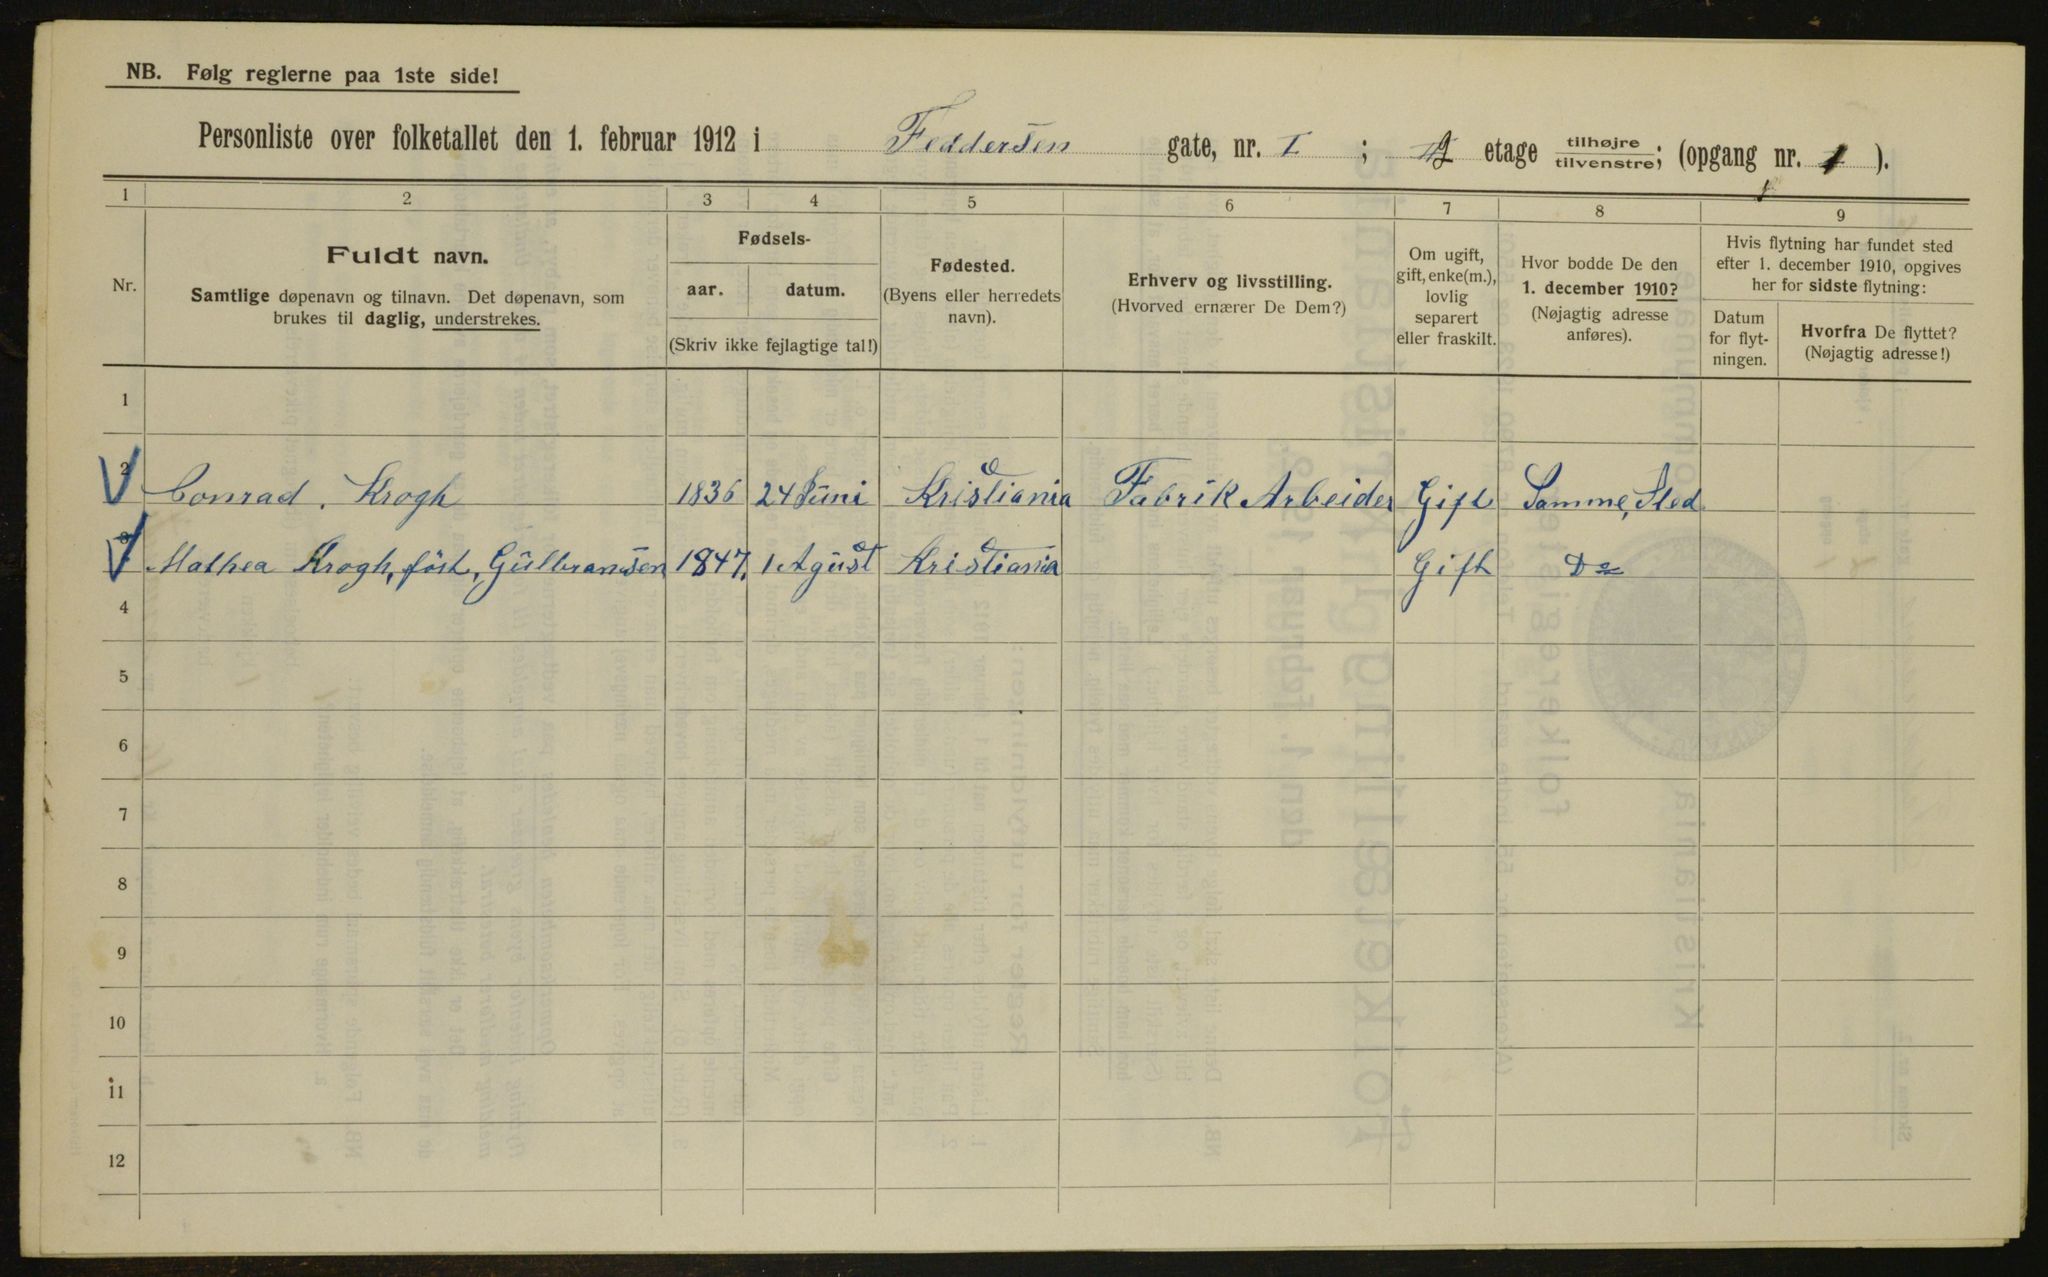 NB. Følg reglerne paa 1ste side!
Personliste over folketallet den 1. februar 1912 i Feddersen gate, nr. I ; 2 etage tilhøjre tilvenstre; (opgang nr. 1 ).
1 2 3 4 5 6 7 8 9
Nr.
Fuldt navn.
Samtlige døpenavn og tilnavn. Det døpenavn, som
brukes til daglig, understrekes.
Fødsels-
aar. datum.
(Skriv ikke fejlagtige tal!)
Fødested.
(Byens eller herredets
navn).
Erhverv og livsstilling.
(Hvorved ernærer De Dem?)
Om ugift,
gift, enke(m.),
lovlig
separert
eller fraskilt.
Hvor bodde De den
1. december 1910?
(Nøjagtig adresse
anføres).
Hvis flytning har fundet sted
efter 1. december 1910, opgives
her for sidste flytning:
Datum
for flyt-
ningen.
Hvorfra De flyttet?
(Nøjagtig adresse!)
1
2 Conrad. Krogh 1836 24 Juni Kristiania Fabrik Arbeider Gift Samme, Sted
3 Mathea Krogh, föst, Gülbransen 1847. 1 Agust Kristiania Gift Do
4
5
6
7
8
9
10
11
12